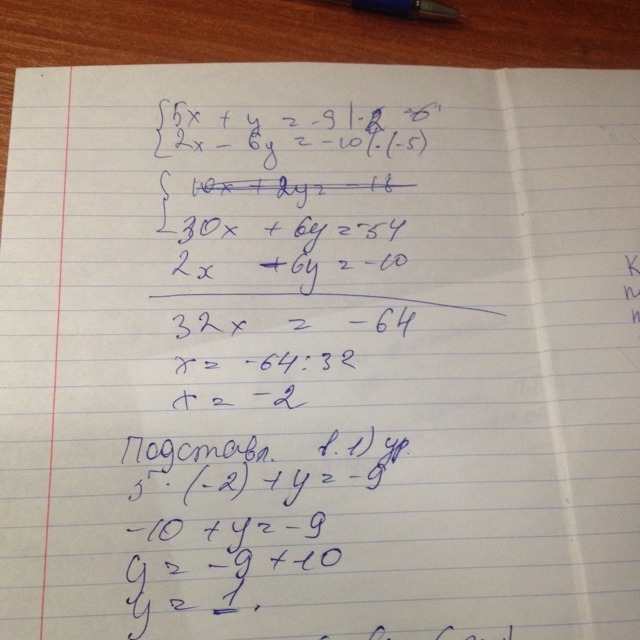 5x + y = -9 |·2 6
2x - 6y = -10 |·(-5)
10x + 2y = -18
30x + 6y = -54
2x - 6y = -10
32x = -64
x = -64:32
x = -2
Подставл. в. 1) ур.
5·(-2) + y = -9
-10 + y = -9
y = -9 + 10
y = 1.